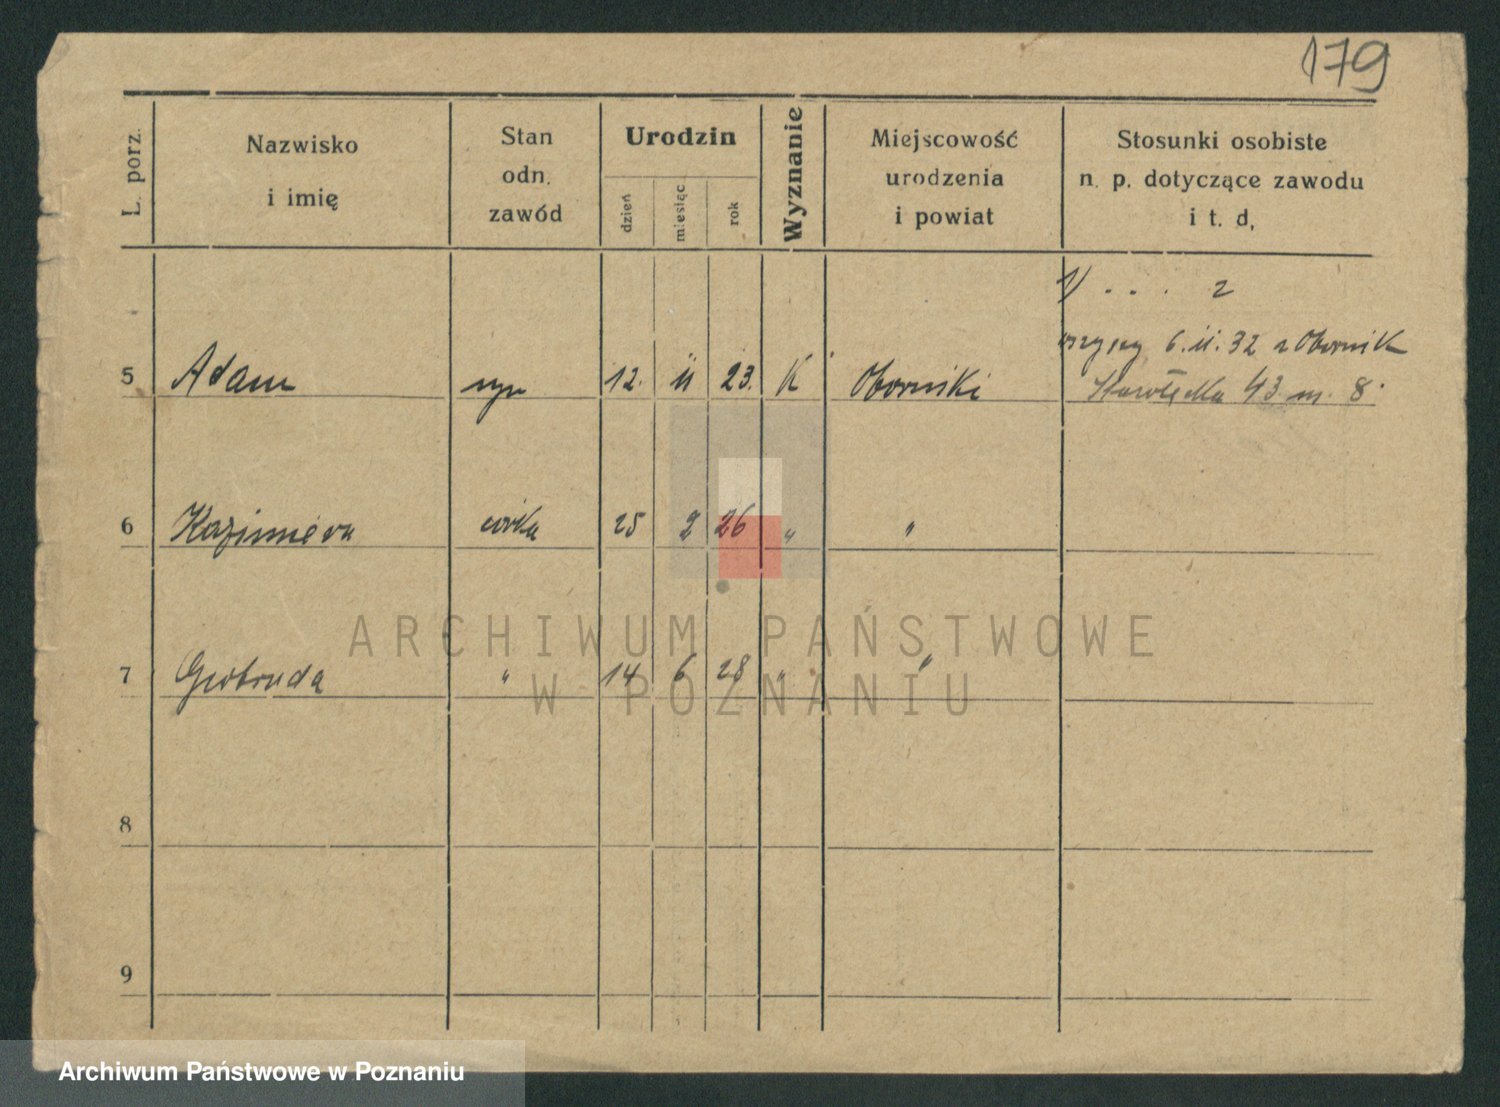 179
L. porz.
Nazwisko
i imię
Stan
odn.
zawód
Urodzin
dzień
miesiąc
rok
Wyznanie
Miejscowość
urodzenia
i powiat
Stosunki osobiste
n. p. dotyczące zawodu
i t. d.
1) . . . 2
wszyscy 6.11.32 z Obornik
5 Adam syn 12. 11 23. K Oborniki 43 m. 8.
6 Kazimiera córka 25 2 26 " "
7 Gertruda " 14 6 28 " "
8
9
ARCHIWUM PAŃSTWOWE
W POZNANIU
Archiwum Państwowe w Poznaniu